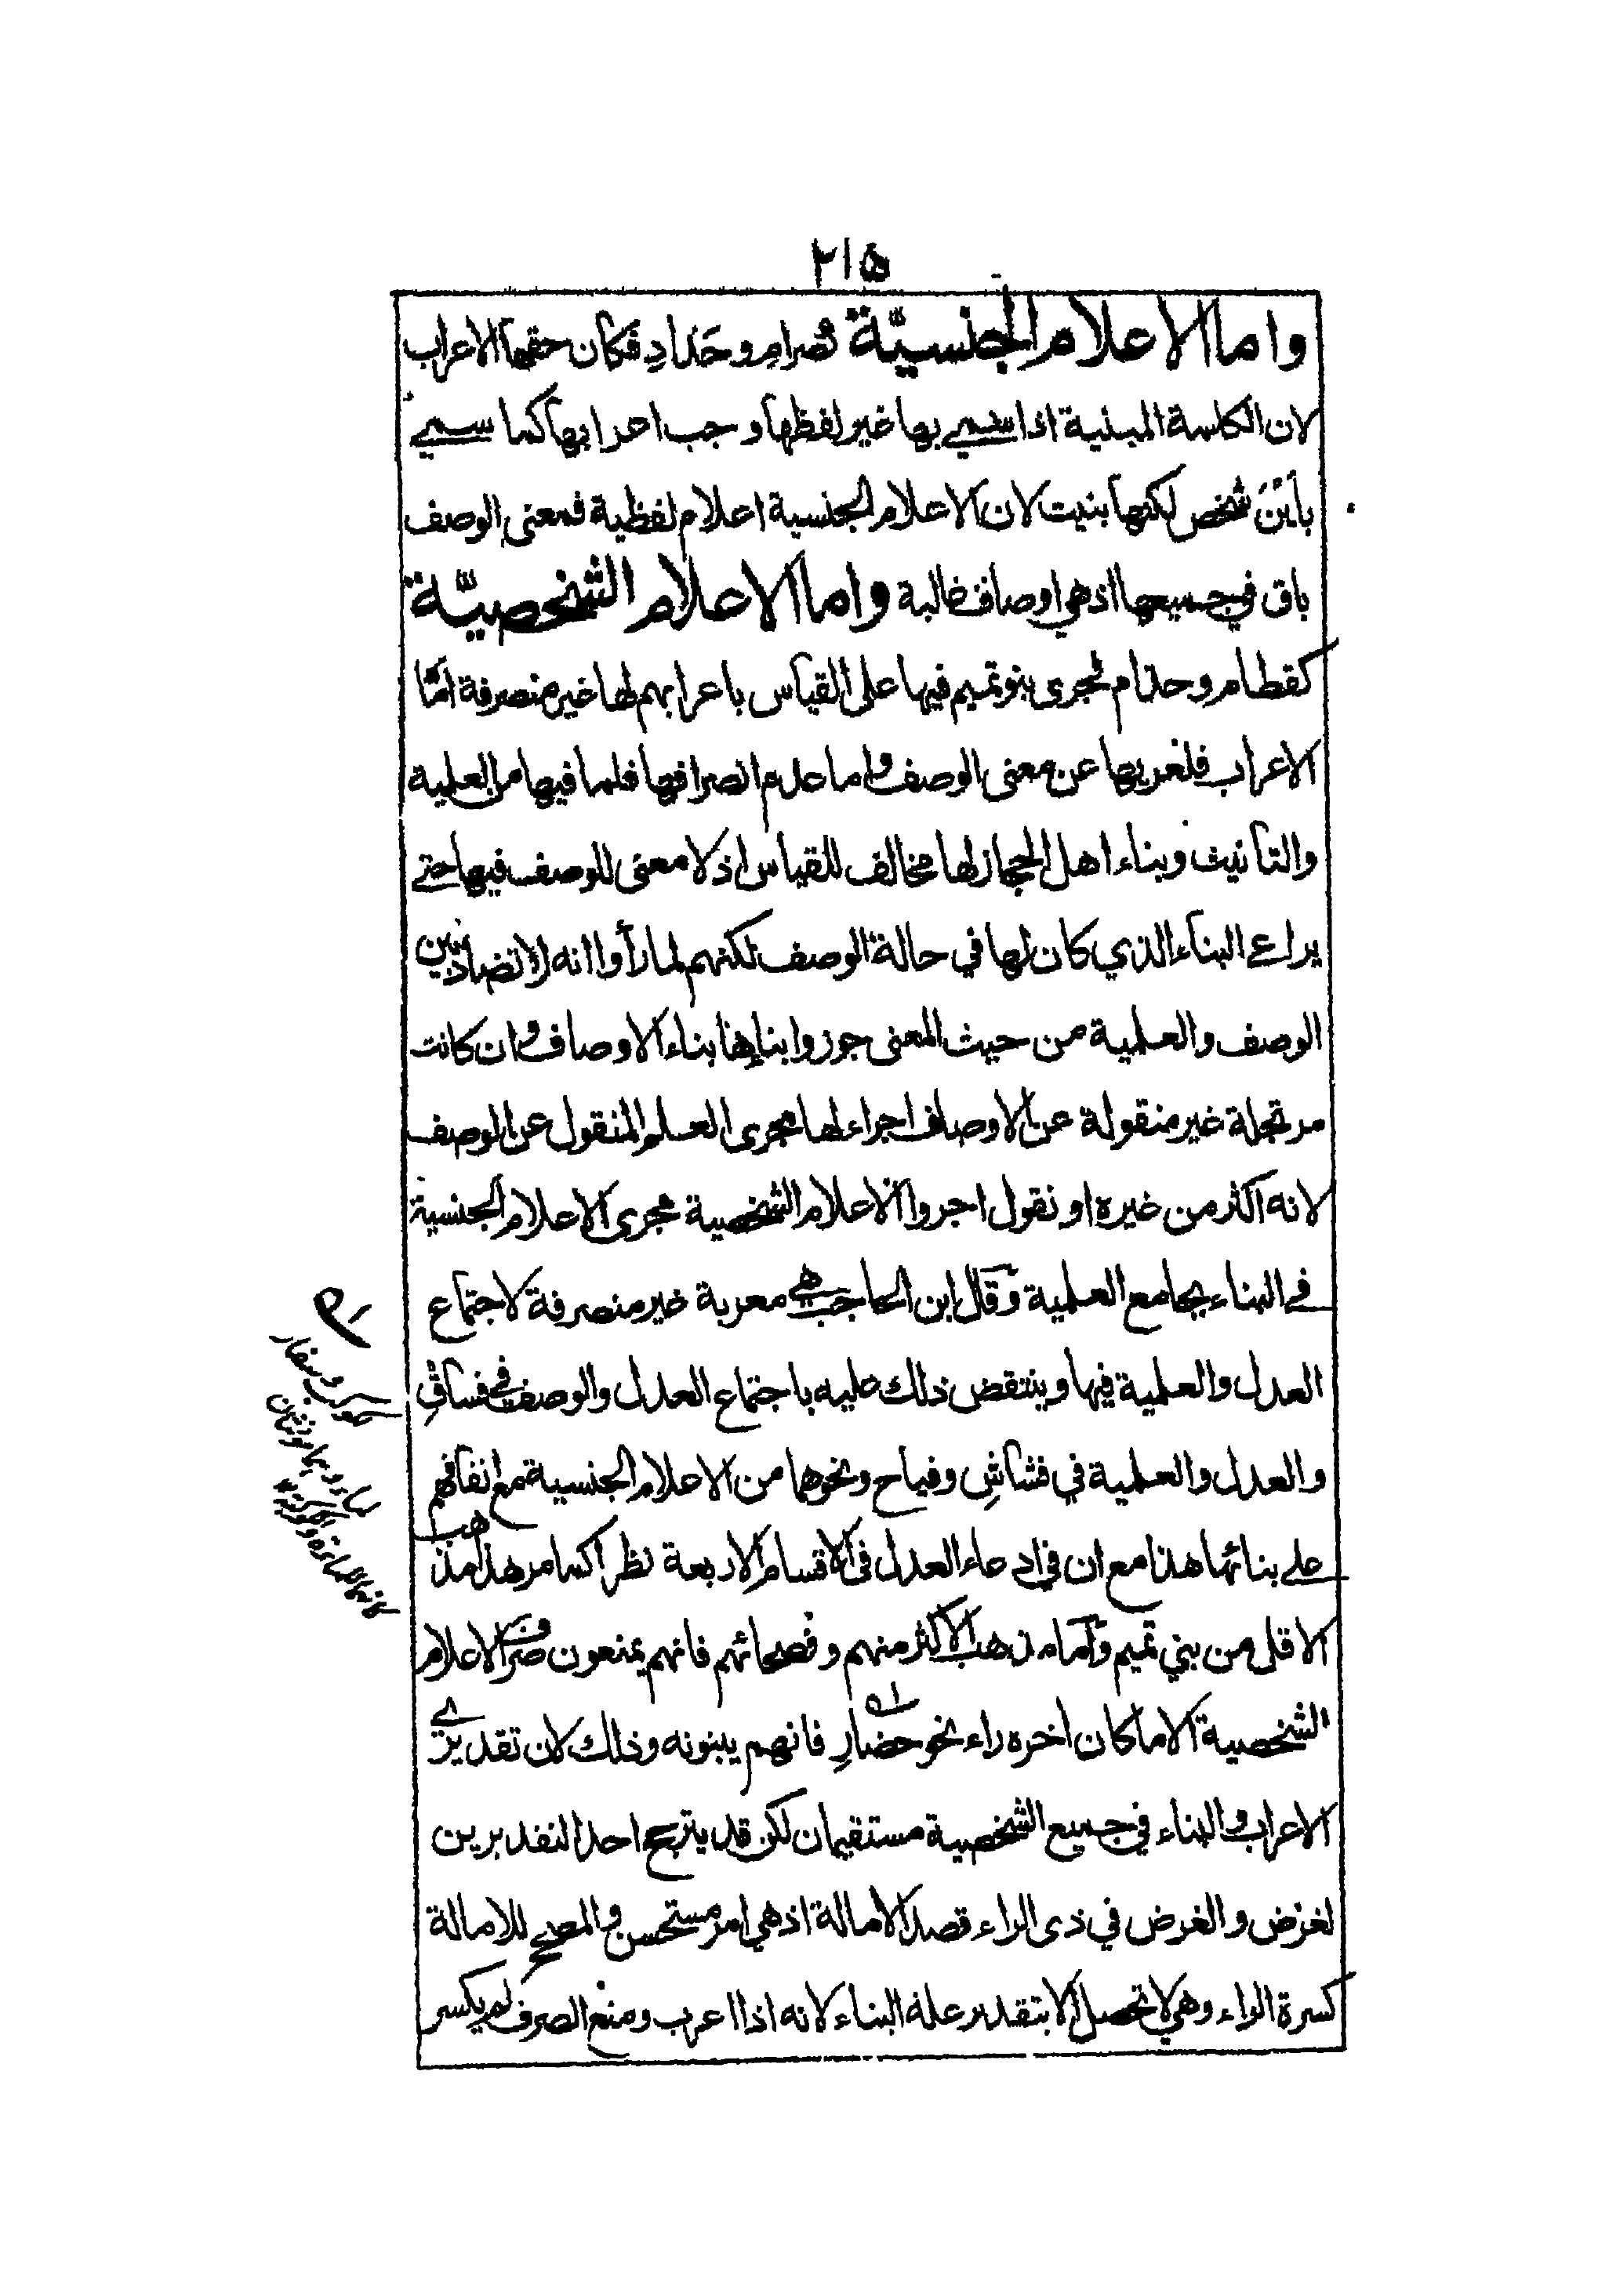 ٢١٥
واما الاعلام الجنسيّة كصرامِ وحَدادِ فكان حقها الاعراب
لان الكلمة المبنية اذا سمي بها غير لفظها وجب اعرابها كما سمي
بأينَ شخص لكنها بنيت لان الاعلام الجنسية اعلام لفظية فمعنى الوصف
باق في جميعها اذ هي اوصاف غالبة واما الاعلام الشخصيّة
كقطام وحذام فجرى بنو تميم فيها على القياس باعرابهم لها غير منصرفة امّا
الاعراب فلعريها عن معنى الوصف واما عدم انصرافها فلما فيها من العلمية
والتأنيث وبناء اهل الحجاز لها مخالف للقياس اذ لا معنى للوصف فيها حتى
يراعى البناء الذي كان لها في حالة الوصف لكنهم لما رأوا انه لا تضاد بين
الوصف والعلمية من حيث المعنى جوزوا بناءها بناء الاوصاف وان كانت
مرتجلة غير منقولة عن الاوصاف اجراء لها مجرى العلم المنقول عن الوصف
لانه اكثر من غيره او نقول اجروا الاعلام الشخصية مجرى الاعلام الجنسية
في البناء بجامع العلمية وقال ابن الحاجب هي معربة غير منصرفة لاجتماع
العدل والعلمية فيها وينتقض ذلك عليه باجتماع العدل والوصف في فساقِ
والعدل والعلمية في فشاشِ وفياح ونحوهما من الاعلام الجنسية مع اتفاقهم
على بنائها هذا مع ان في ادعاء العدل في الاقسام الاربعة نظرا كما مر هذا مذهب
الاقل من بني تميم واما مذهب الاكثر منهم وفصحائهم فانهم يمنعون صرف الاعلام
الشخصية الا ما كان اخره راء نحو حضارِ فانهم يبنونه وذلك لان تقديري
الاعراب والبناء في جميع الشخصية مستقيمان لكن قد يترجح احد التقديرين
لغرض والغرض في ذى الراء قصد الامالة اذ هي امر مستحسن والمصحح للامالة
كسرة الراء وهي لا تحصل الا بتقدير علة البناء لانه اذا اعرب ومنع الصرف لم يكسر